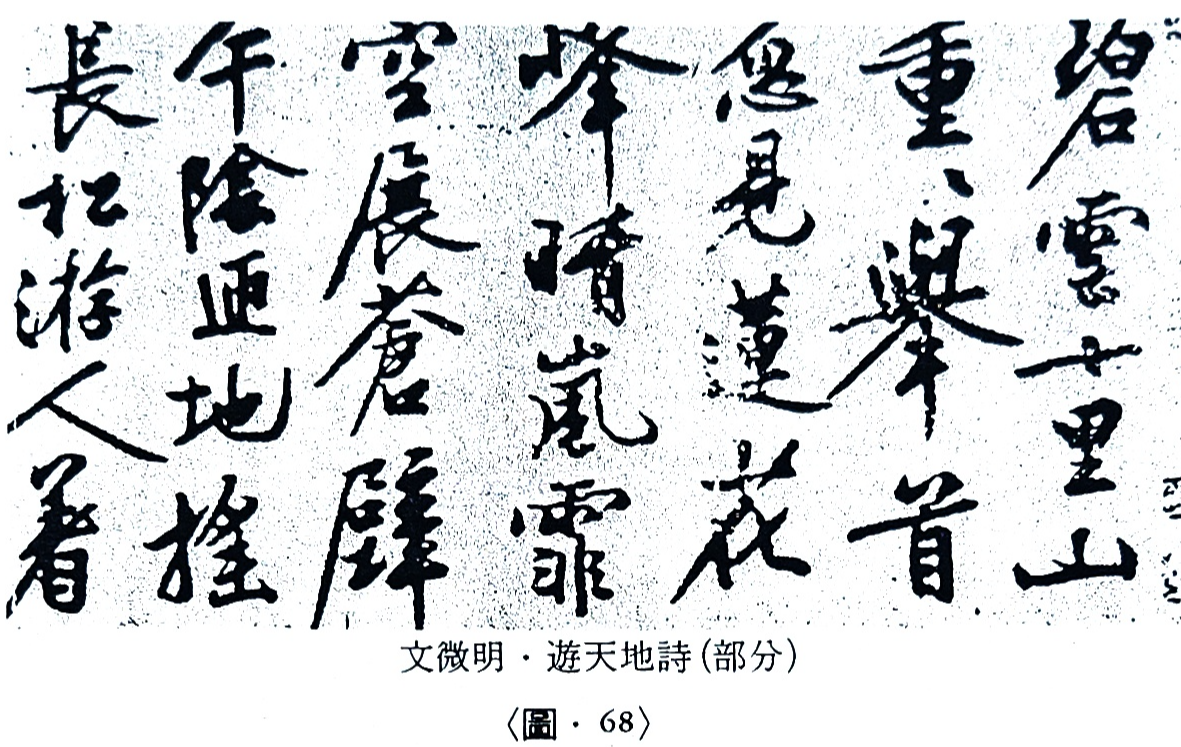 碧雲十里山
重〻舉首
忽見蓮花
峰晴嵐霏
空展蒼壁
午陰匝地搖
長松游人著
文微明・遊天地詩(部分)
〈圖・68〉